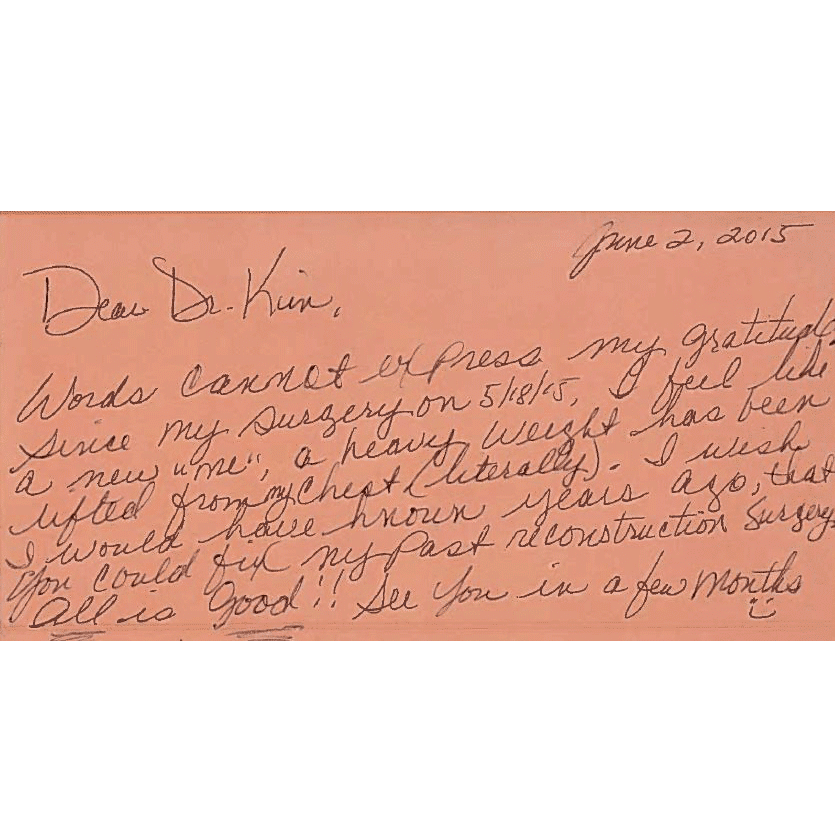 June 2, 2015
Dear Dr. Kim,
Words cannot express my gratitude
since my surgery on 5/18/15, I feel like
a new "me", a heavy weight has been
lifted from my chest (literally). I wish
I would have known years ago, that
you could fix my past reconstruction surgery.
All is Good!! See you in a few months